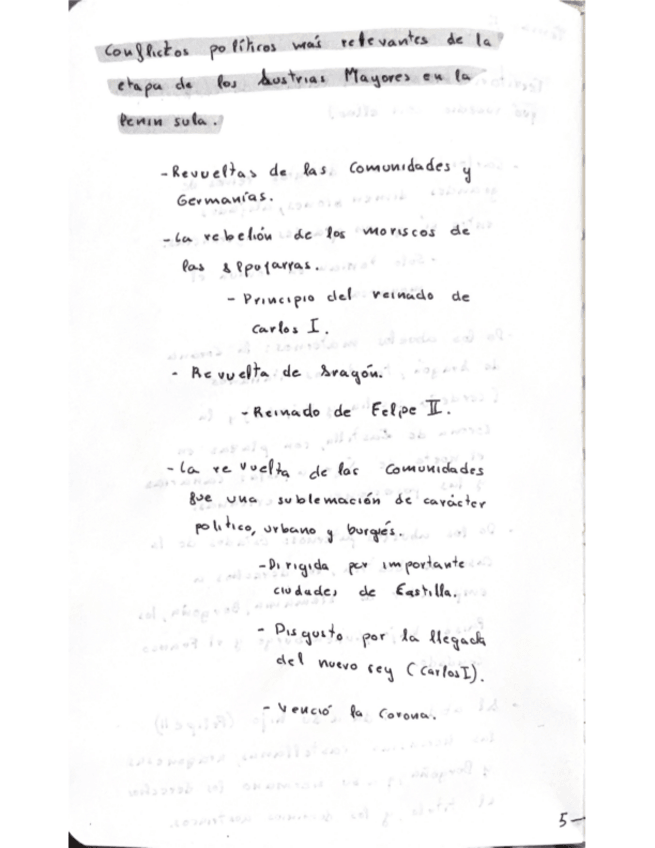 Conflictos políticos más relevantes de la
etapa de los Austrias Mayores en la
Penin sula.
- Revueltas de las Comunidades y
Germanías.
- La rebelión de los moriscos de
las Alpujarras.
- Principio del reinado de
Carlos I.
- Revuelta de Aragón.
- Reinado de Felipe II.
- La revuelta de las Comunidades
fue una sublemación de carácter
político, urbano y burgués.
- Dirigida por importante
ciudades de Castilla.
- Disgusto por la llegada
del nuevo rey (Carlos I).
- Venció la Corona.
5-